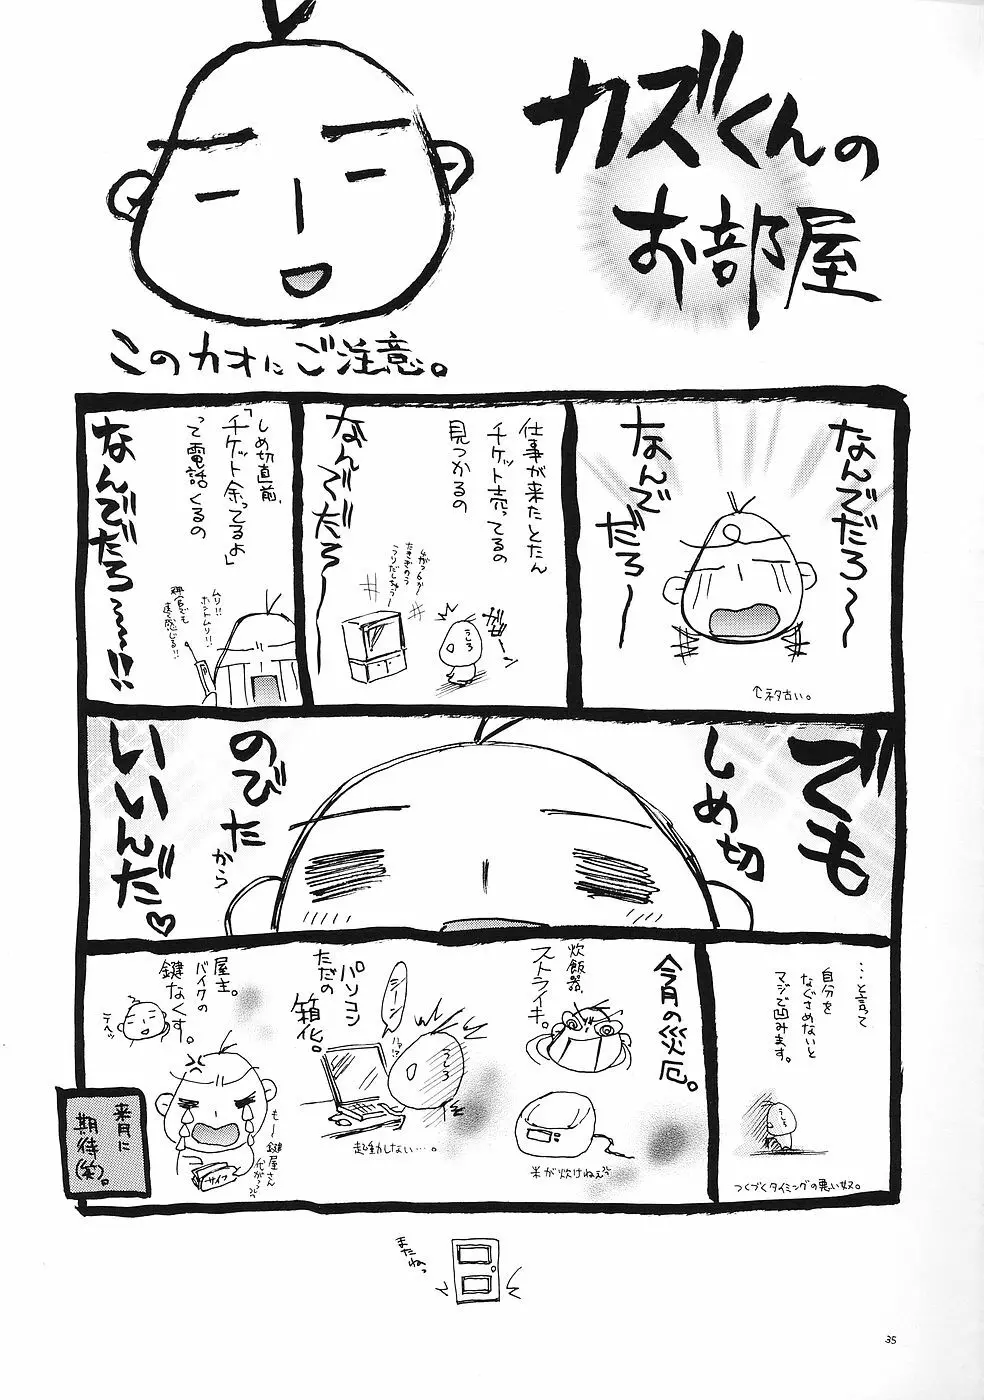 カズくんの
お部屋
このカオにご注意。
なんでだろ〜
なんで
だろ〜
↑ネタ古い。
仕事が来たとたん
チケット売ってるの
見つかるの
なんでだろ〜
うしろ
しめ切直前、
「チケット余ってるよ」
って電話くるの
なんでだろ〜〜!!
ムリ!!
ホントムリ!!
でも
しめ切
のびた
から
いいんだ♡
…と言って
自分を
なぐさめないと
マジで凹みます。
つくづくタイミングの悪い奴。
今月の災厄。
炊飯器、
ストライキ。
米が炊けねぇ
パソコン
ただの
箱化。
シーン
うしろ
起動しない…。
屋主。
バイクの
鍵なくす。
も〜
鍵屋さん
サイフ
来月に
期待(笑)。
またねっ
35